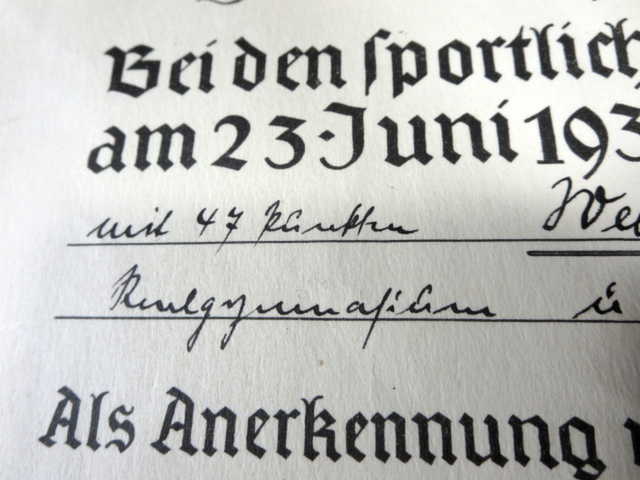 Bei den sportlich
am 23. Juni 193
mit 47 Punkten We
Realgymnasium u
Als Anerkennung